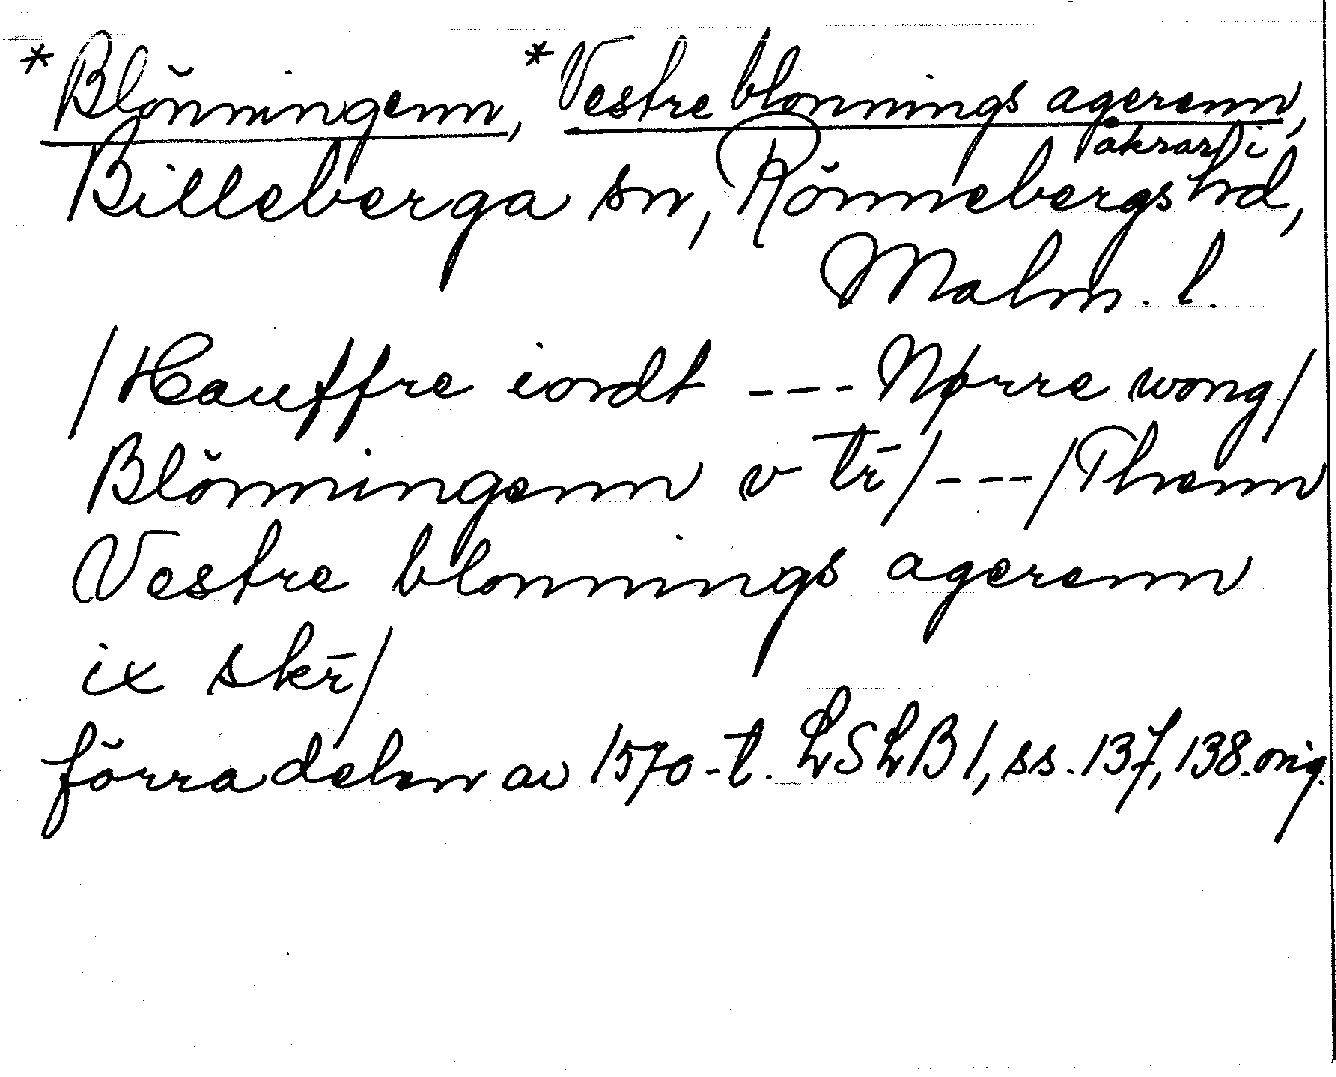 *Blŏnningenn, *Vestre blonnings agerenn,
åkrar i
Billeberga sn, Rönnebergs hd,
Malm. l.
/Hauffre iordt --- Nørre wong/
Blŏnningenn v tr̄/---/Thenn
Vestre blonnings agerenn
ix skr̄/
förra delen av 1570-t. LSLB 1, ss. 137, 138. orig.